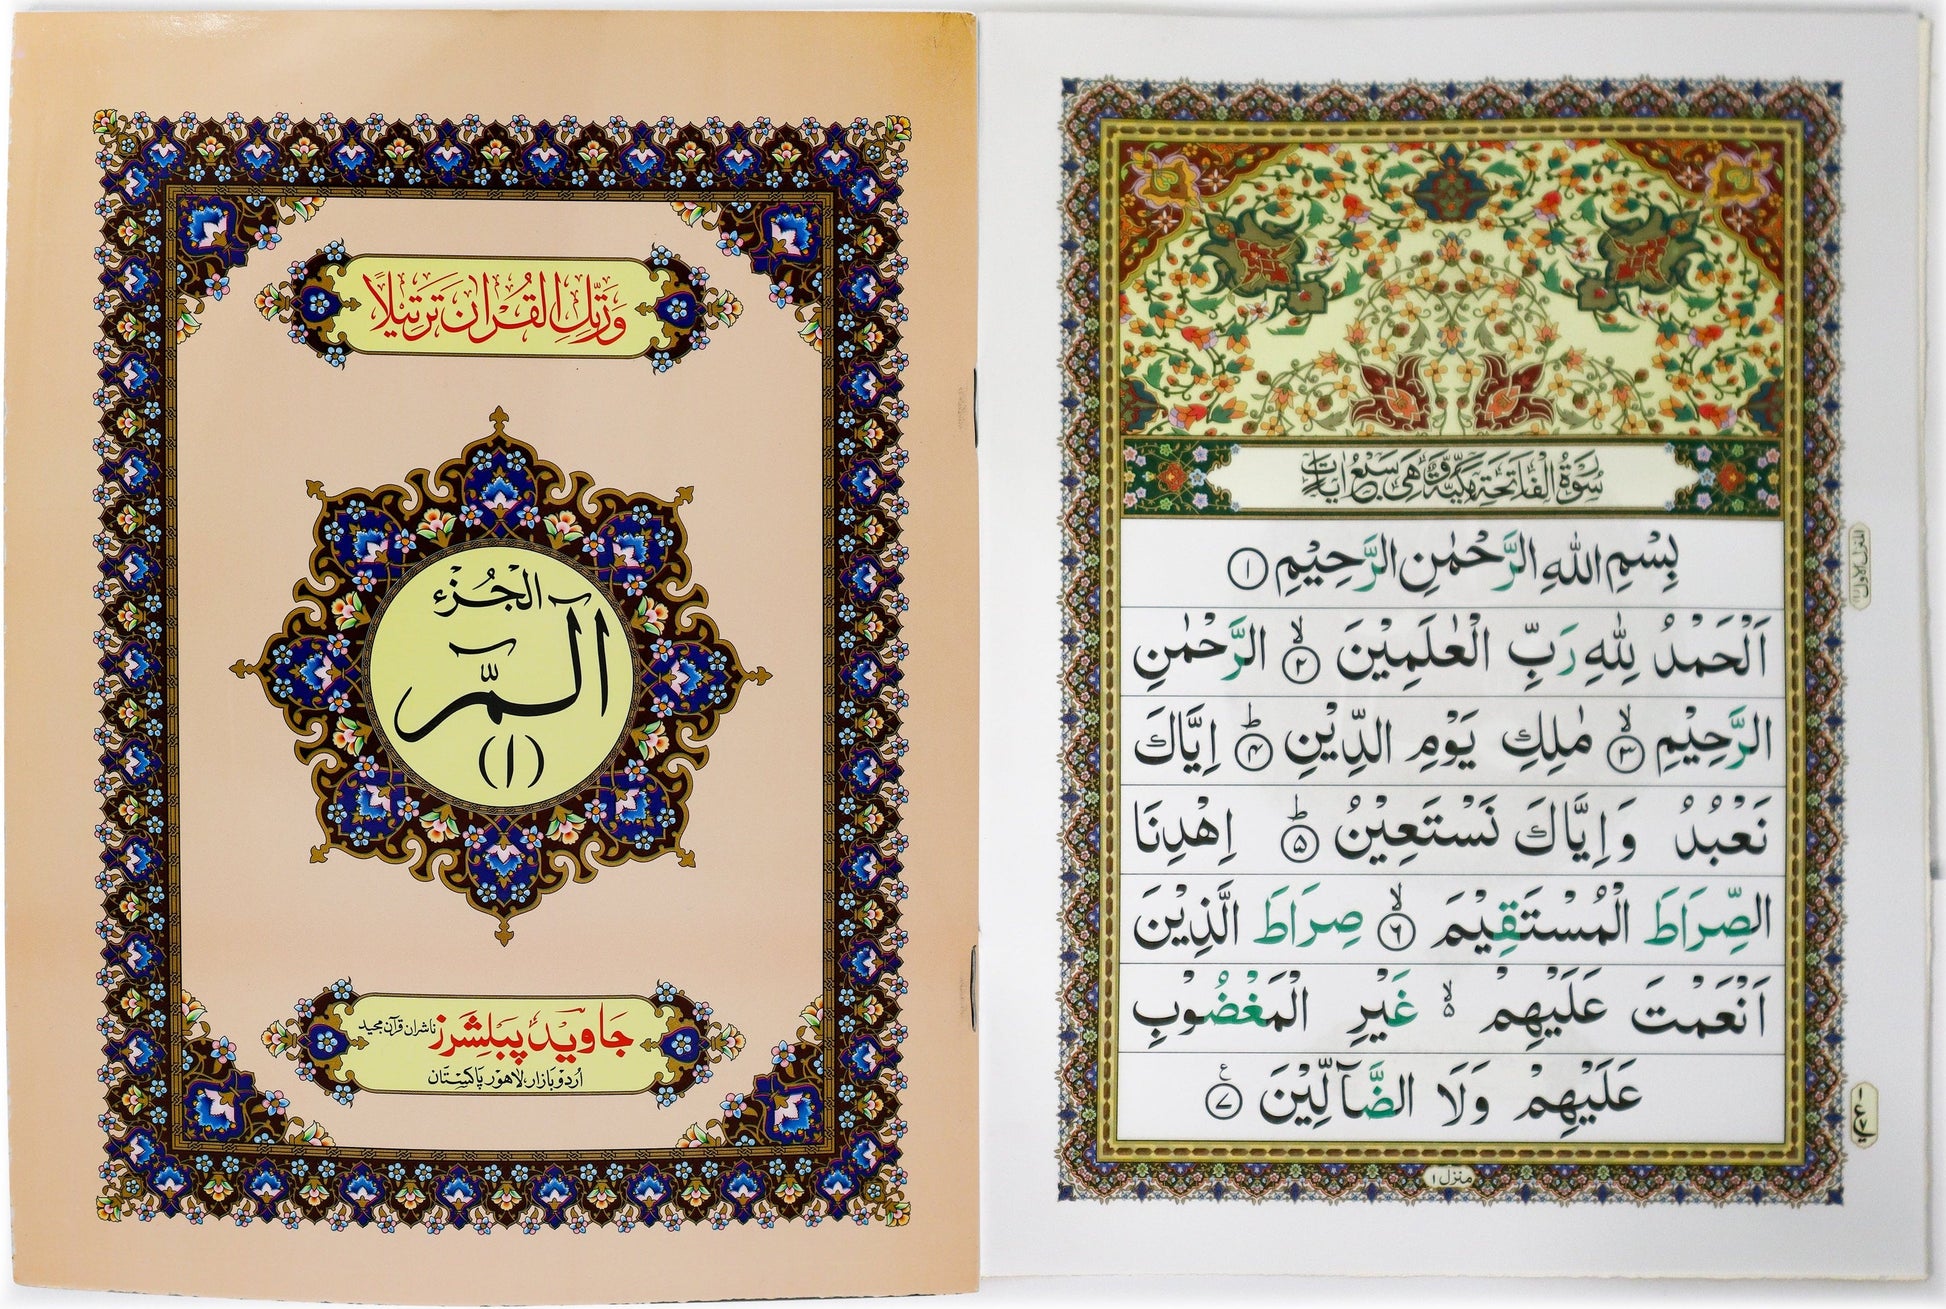 وَرَتِّلِ الْقُرْاٰنَ تَرْتِيْلًا
الْجُزْءُ
الٓمّٓ
(١)
جاوید پبلشرز ناشران قرآن مجید
اُردو بازار، لاہور پاکستان
سُوْرَةُ الْفَاتِحَةِ مَكِّيَّةٌ وَّهِىَ سَبْعُ اٰيَاتٍ
بِسْمِ اللهِ الرَّحْمٰنِ الرَّحِيْمِ ۝١
اَلْحَمْدُ لِلّٰهِ رَبِّ الْعٰلَمِيْنَ ۙ۝٢ الرَّحْمٰنِ
الرَّحِيْمِ ۙ۝٣ مٰلِكِ يَوْمِ الدِّيْنِ ؕ۝۴ اِيَّاكَ
نَعْبُدُ وَاِيَّاكَ نَسْتَعِيْنُ ؕ۝۵ اِهْدِنَا
الصِّرَاطَ الْمُسْتَقِيْمَ ۙ۝٦ صِرَاطَ الَّذِيْنَ
اَنْعَمْتَ عَلَيْهِمْ ۙ۵ غَيْرِ الْمَغْضُوْبِ
عَلَيْهِمْ وَلَا الضَّآلِّيْنَ ۝٧ ع
منزل ١
المنزل الاول (١)